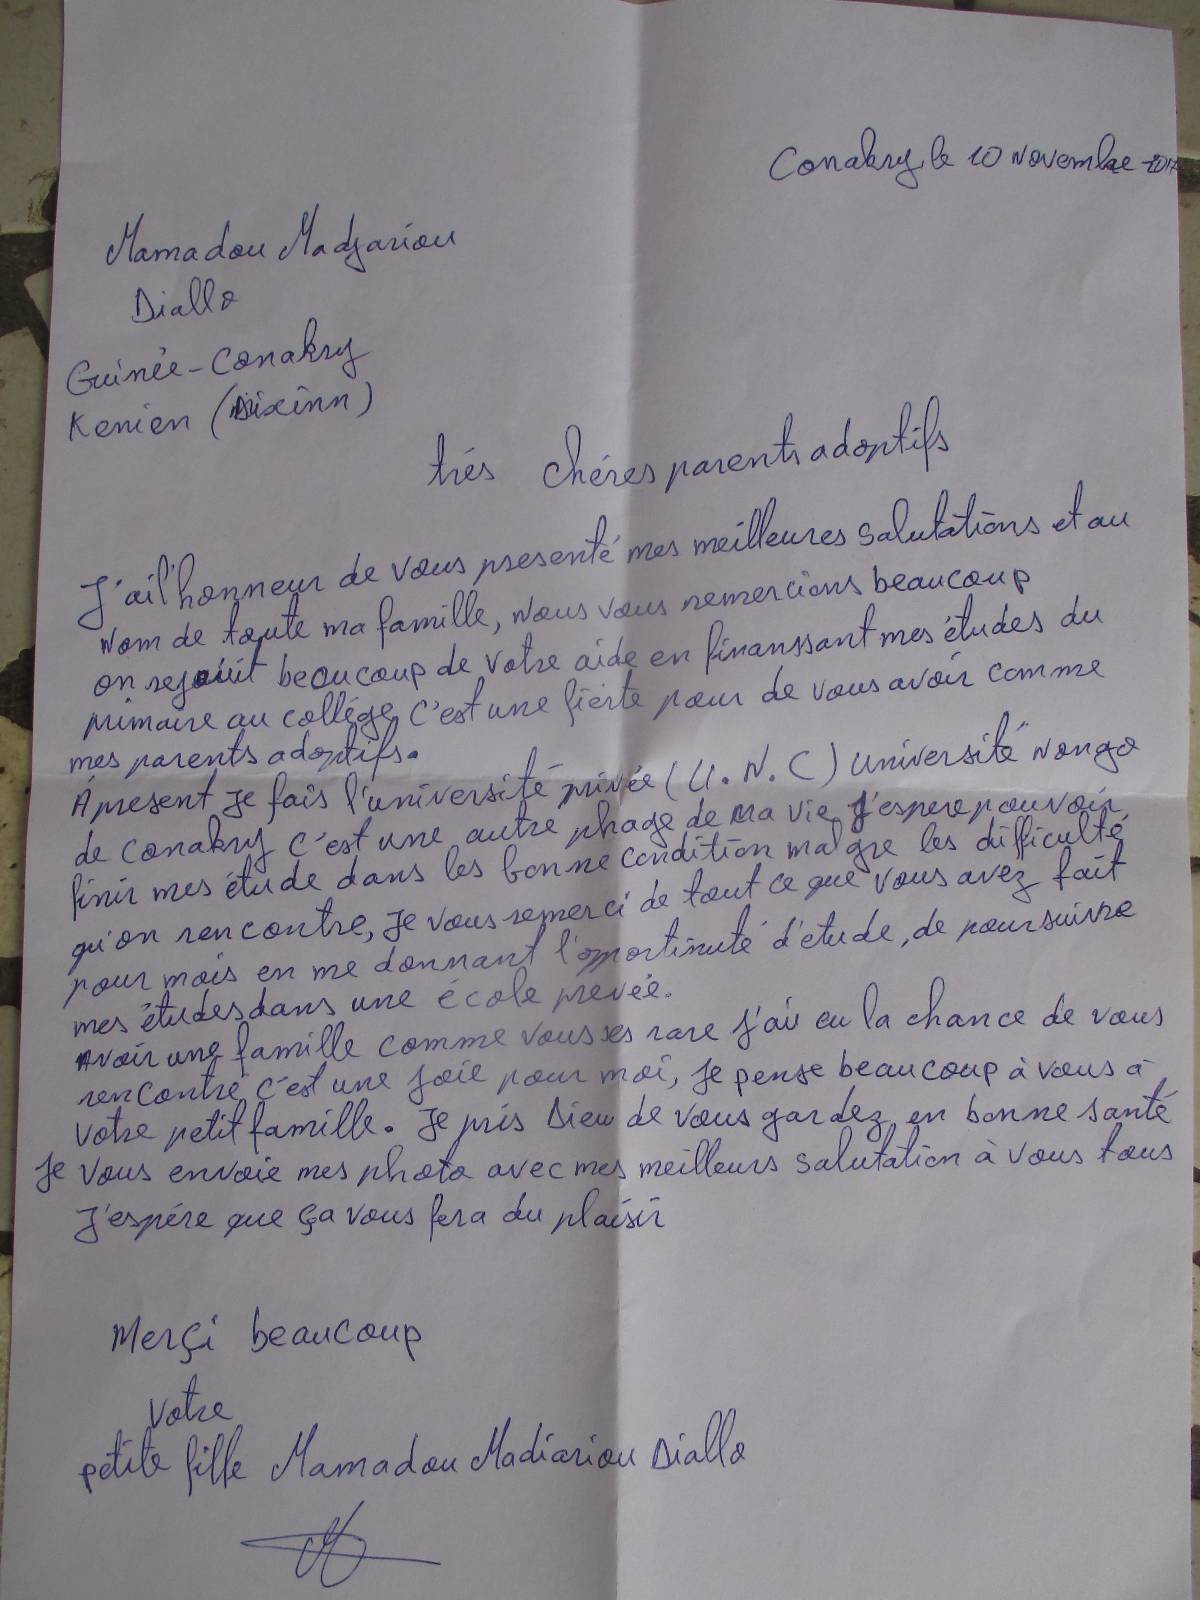 Conakry, le 10 novembre 2017
Mamadou Madjariou
Diallo
Guinée-Conakry
Kenien (Dixinn)
trés chéres parents adoptifs
J'ai l'honneur de vous presenté mes meilleures salutations et au
nom de toute ma famille, nous vous remercions beaucoup
on rejouit beaucoup de votre aide en finanssant mes études du
primaire au collége, c'est une fierte pour de vous avoir comme
mes parents adoptifs.
Apresent je fais l'université privée (U.N.C) université nongo
de conakry c'est une autre phage de ma vie, j'espere pouvoir
finir mes étude dans les bonne condition malgre les difficulté
qu'on rencontre, je vous remerci de tout ce que vous avez fait
pour mois en me donnant l'opportinuté d'étude, de poursuivre
mes études dans une école prevée.
Avoir une famille comme vous ses rare j'ai eu la chance de vous
rencontre c'est une joie pour moi, je pense beaucoup à vous à
votre petit famille. Je pris Dieu de vous gardez en bonne santé
Je vous envoie mes photo avec mes meilleurs salutation à vous tous
J'espére que ça vous fera du plaisir
Merçi beaucoup
Votre
petite fille Mamadou Madiariou Diallo